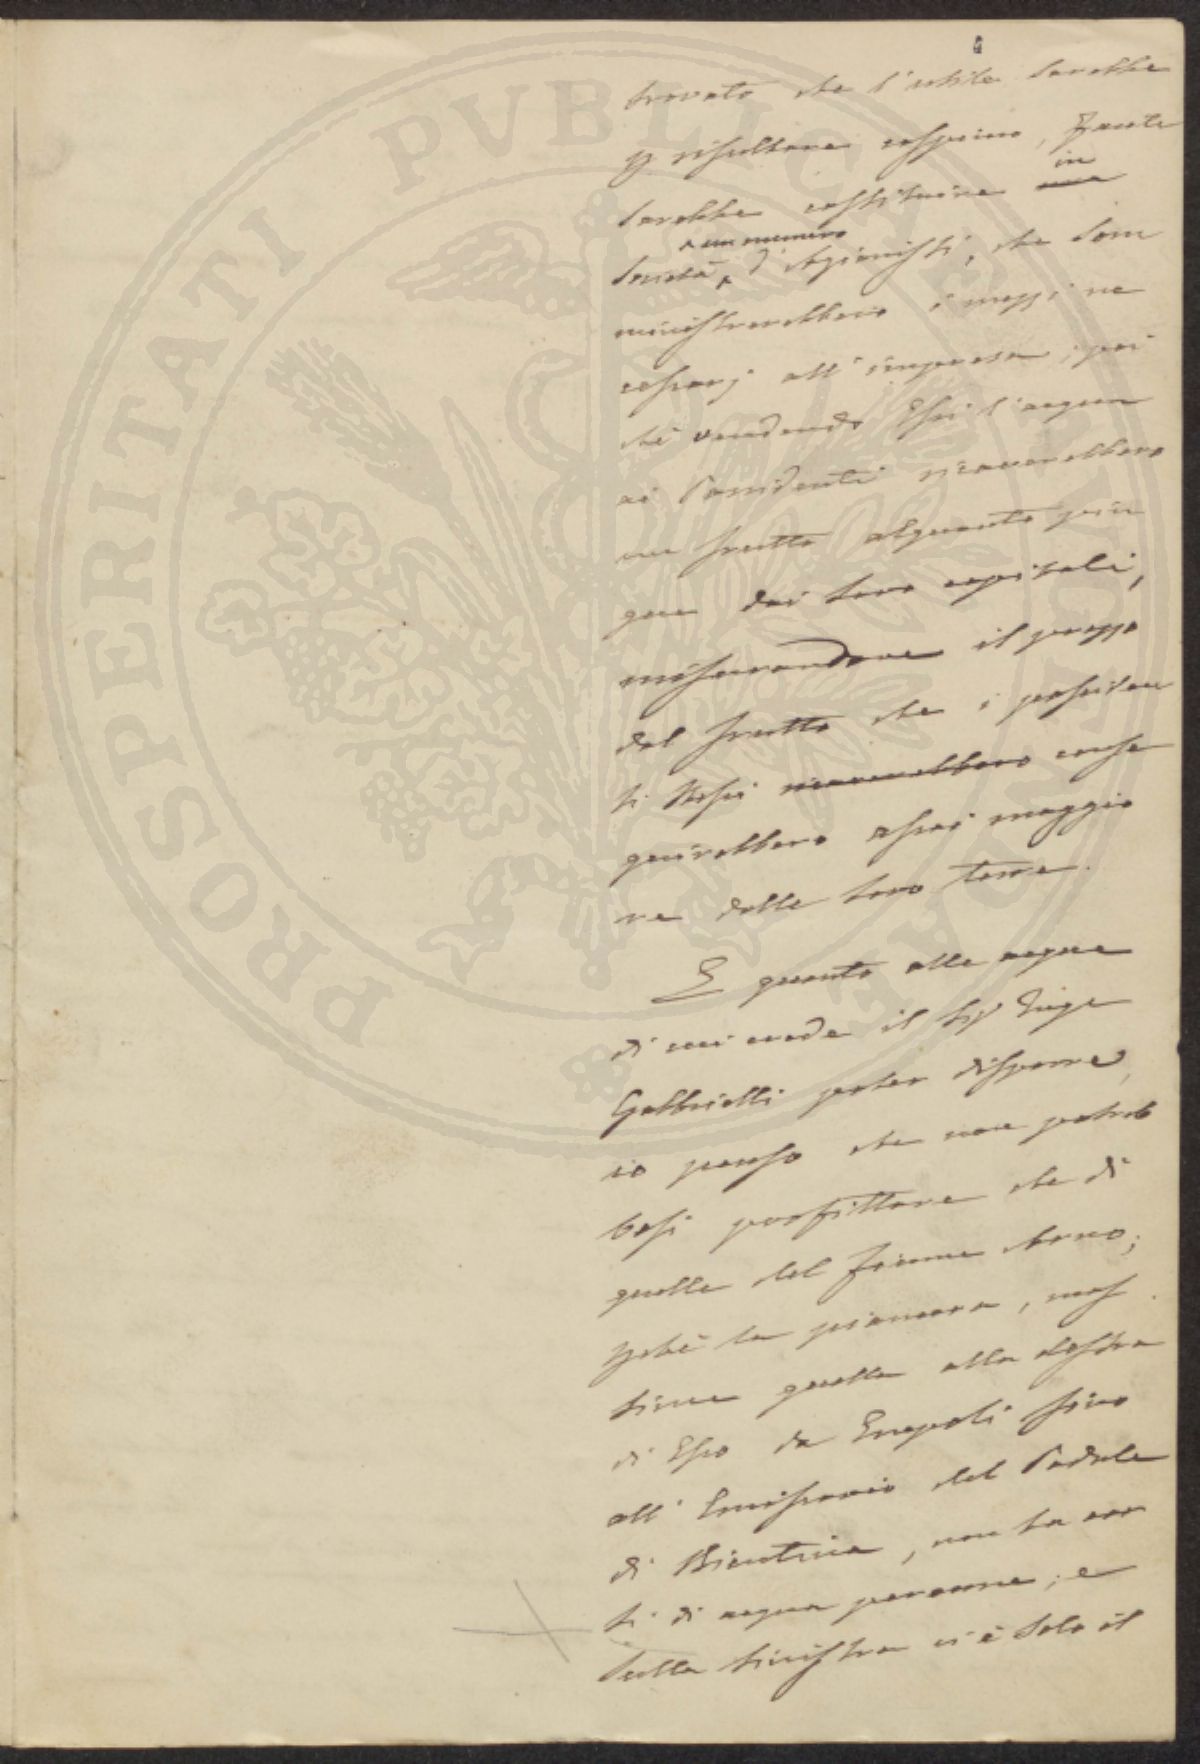 trovato che l'utile sarebbe
p risultare cospicuo, facile
sarebbe costituire in
Società, un numero d'Azionisti, che som
ministrerebbero i mezzi ne
cessarj all'impresa; poi
chè vendendo Essi l'acqua
ai Possidenti ricaverebbero
un frutto alquanto pin
gue dai loro capitali,
misurandone il prezzo
dal frutto che i possiden
ti stessi ricaverebbero conse
guirebbero assai maggio
re dalle loro terre.
E quanto alle acque
di cui crede il Sig Inge
Gabbrielli poter disporre,
io penso che non potreb
besi profittare che di
quelle del fiume Arno;
pchè la pianura, mas
sime quella alla destra
di Esso da Empoli fino
all'Emissario del Padule
di Bientina, non ha cor
si di acqua perenne; e
sulla sinistra vi è solo il
PROSPERITATI PVBLICAE AVGENDAE